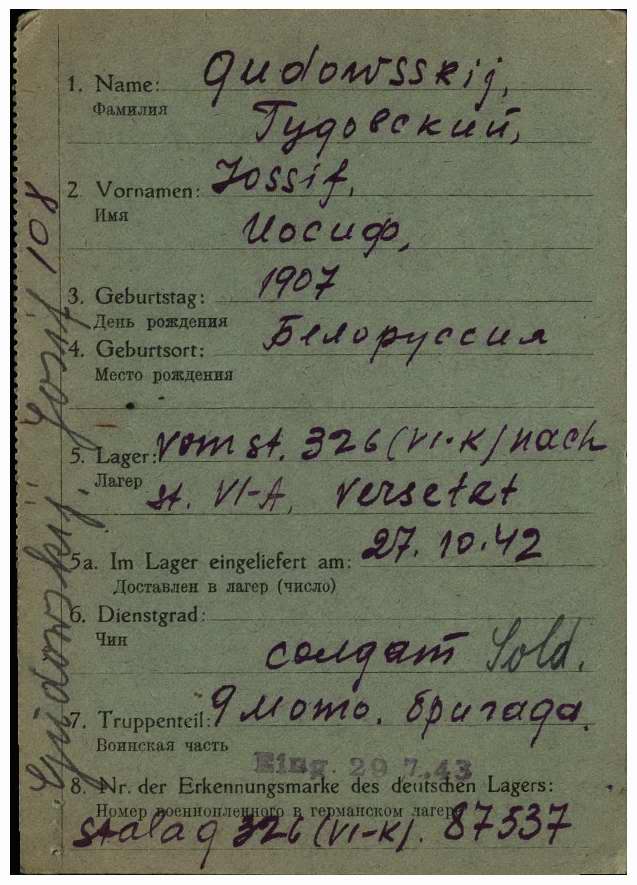 1. Name: Gudowsskij,
Фамилия
Гудовский,
2. Vornamen: Jossif,
Имя
Иосиф,
3. Geburtstag: 1907
День рождения
4. Geburtsort: Белоруссия
Место рождения
5. Lager: vom st. 326 (VI-K) nach
Лагер
st. VI-A, versetzt
5a. Im Lager eingeliefert am: 27.10.42
Доставлен в лагер (число)
6. Dienstgrad:
Чин
солдат Sold.
7. Truppenteil: 9 мото. бригада.
Воинская часть
Eing. 29 7.43
8. Nr. der Erkennungsmarke des deutschen Lagers:
Номер военнопленного в германском лагере
Stalag 326 (VI-K). 87537
Gudowskij. Josif 108